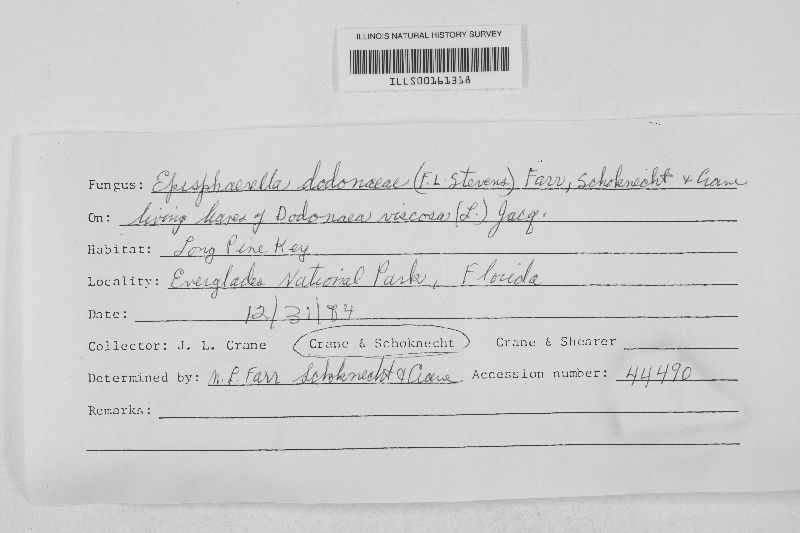 ILLINOIS NATURAL HISTORY SURVEY
ILLS00161318
Fungus: Episphaerella dodonaeae (F.L. Stevens) Farr, Schoknecht & Crane
On: living leaves of Dodonaea viscosa (L.) Jacq.
Habitat: Long Pine Key
Locality: Everglades National Park, Florida
Date: 12/31/84
Collector: J. L. Crane Crane & Schoknecht Crane & Shearer
Determined by: M.L. Farr Schoknecht & Crane Accession number: 44490
Remarks: